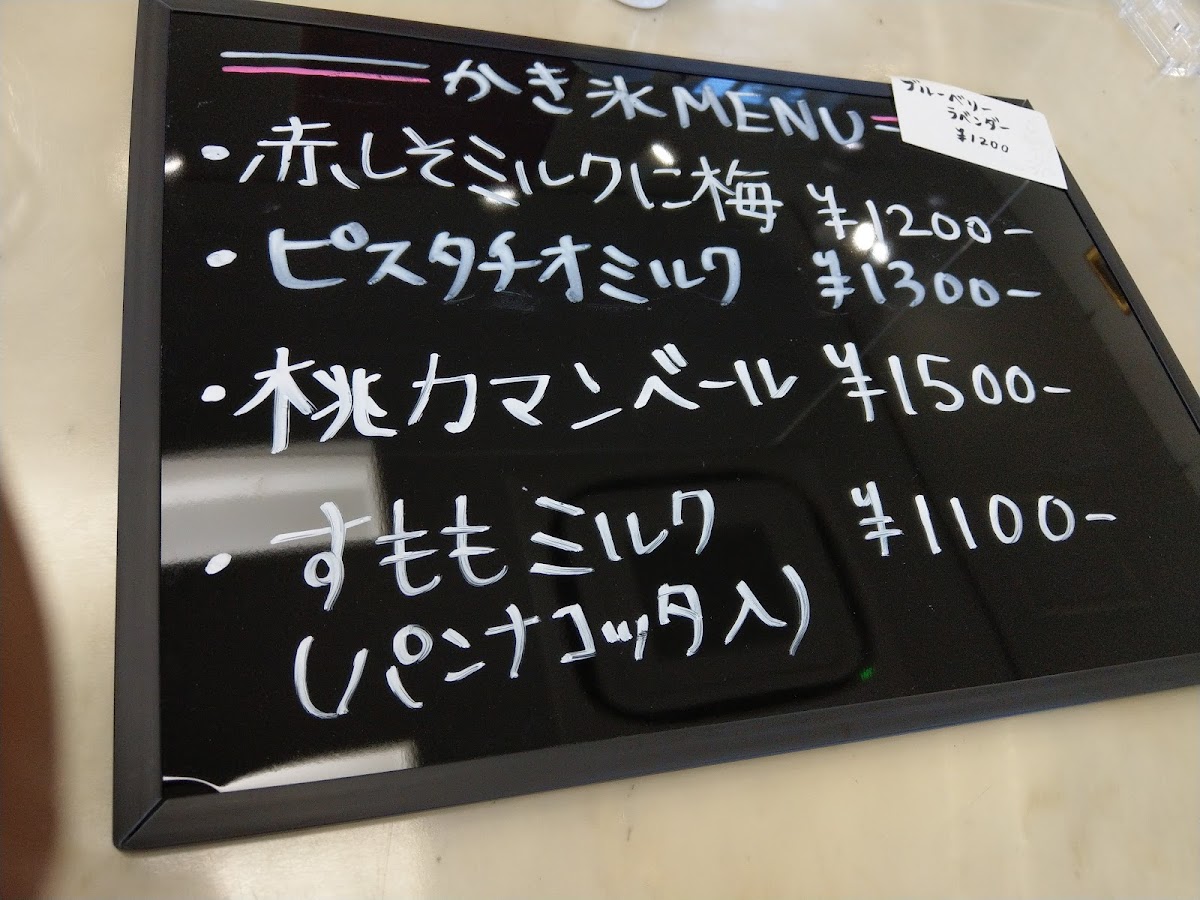 かき氷MENU
ブルーベリー
ラベンダー
¥1200
・赤しそミルクに梅 ¥1200-
・ピスタチオミルク ¥1300-
・桃カマンベール ¥1500-
・すももミルク ¥1100-
(パンナコッタ入)